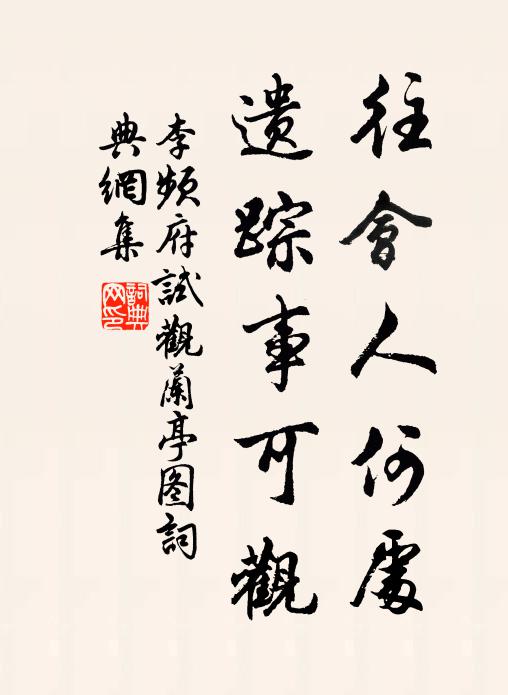 往會人何處
遺踪事可觀
李頻府試觀蘭亭图詞
典網集
詞典
网印